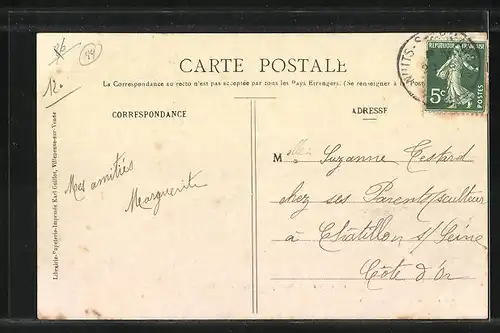 96
94
12.
CARTE POSTALE
La Correspondance au recto n'est pas acceptée par tous les Pays Etrangers. (Se renseigner à la Post
CORRESPONDANCE
ADRESSE
REPUBLIQUE FRANÇAISE
5c
POSTES
Mes amitiés
Marguerite
Melle Suzanne Testard
chez ses Parents sculteur
à Châtillon s/ Seine
Côte d'Or
Librairie-Papeterie-Imprimerie Karl Guillot, Villeneuve-sur-Yonne